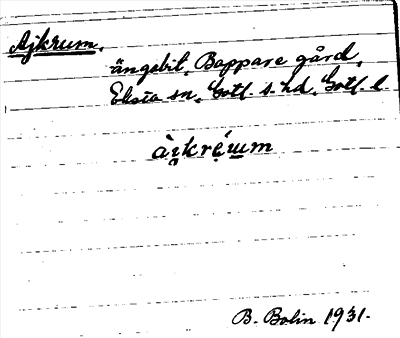 Ajkrum.
ängsbit, Bappare gård,
Eksta sn, Gotl. s. hd, Gotl. l.
ài̯kré̩ɯm
B. Bolin 1931.